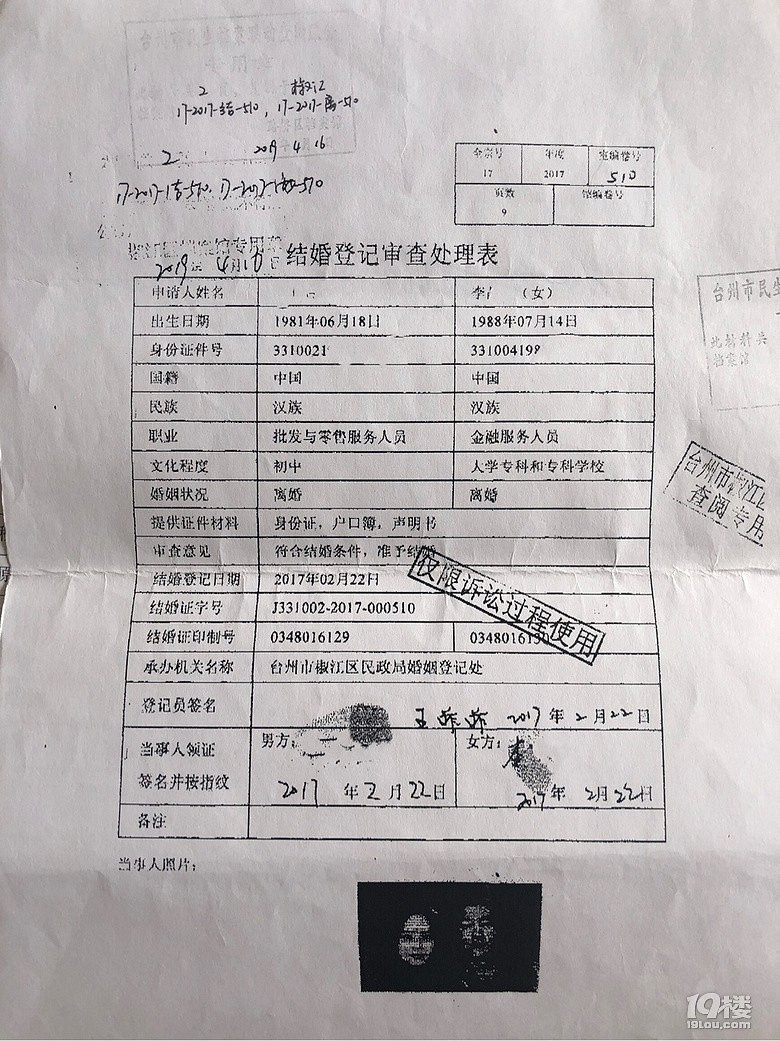 2 椒江
17-2017-结-510, 17-2017-离-510
2019 4 16
2
17-2017-结-510, 17-2017-离-510
全宗号 年度 室编卷号
17 2017 510
页数 馆编卷号
9
馆专用章
2019年4月16日
结婚登记审查处理表
申请人姓名 李 (女)
出生日期 1981年06月18日 1988年07月14日
身份证件号 3310021 331004198
国籍 中国 中国
民族 汉族 汉族
职业 批发与零售服务人员 金融服务人员
文化程度 初中 大学专科和专科学校
婚姻状况 离婚 离婚
提供证件材料 身份证，户口簿，声明书
审查意见 符合结婚条件，准予结婚
结婚登记日期 2017年02月22日
结婚证字号 J331002-2017-000510
结婚证印制号 0348016129 0348016130
承办机关名称 台州市椒江区民政局婚姻登记处
登记员签名 2017年2月22日
当事人领证 男方： 女方：李
签名并按指纹 2017年2月22日 2017年2月22日
备注
当事人照片：
仅限诉讼过程使用
台州市民生
档案馆
台州市椒江区
查阅专用
19楼
19lou.com